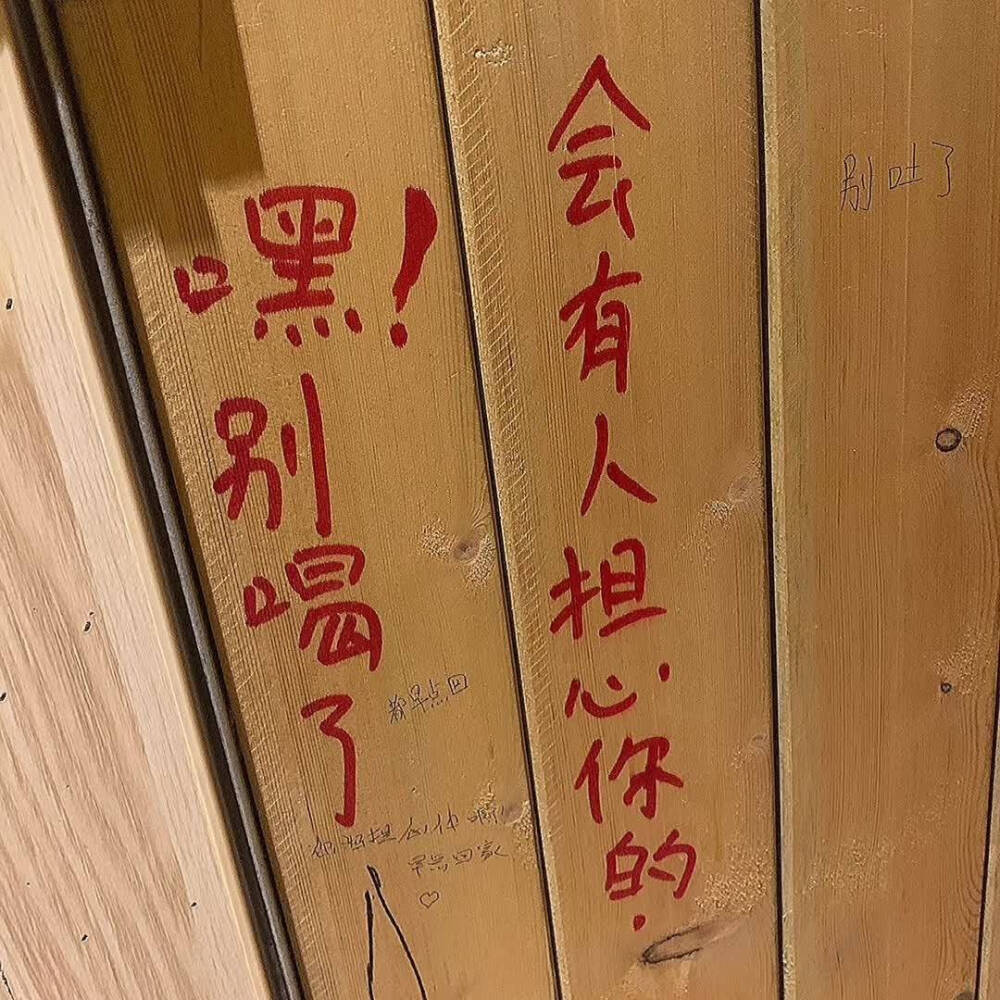 嘿！
别喝了
会有人担心你的.
别吐了
早点回
早点回家♡